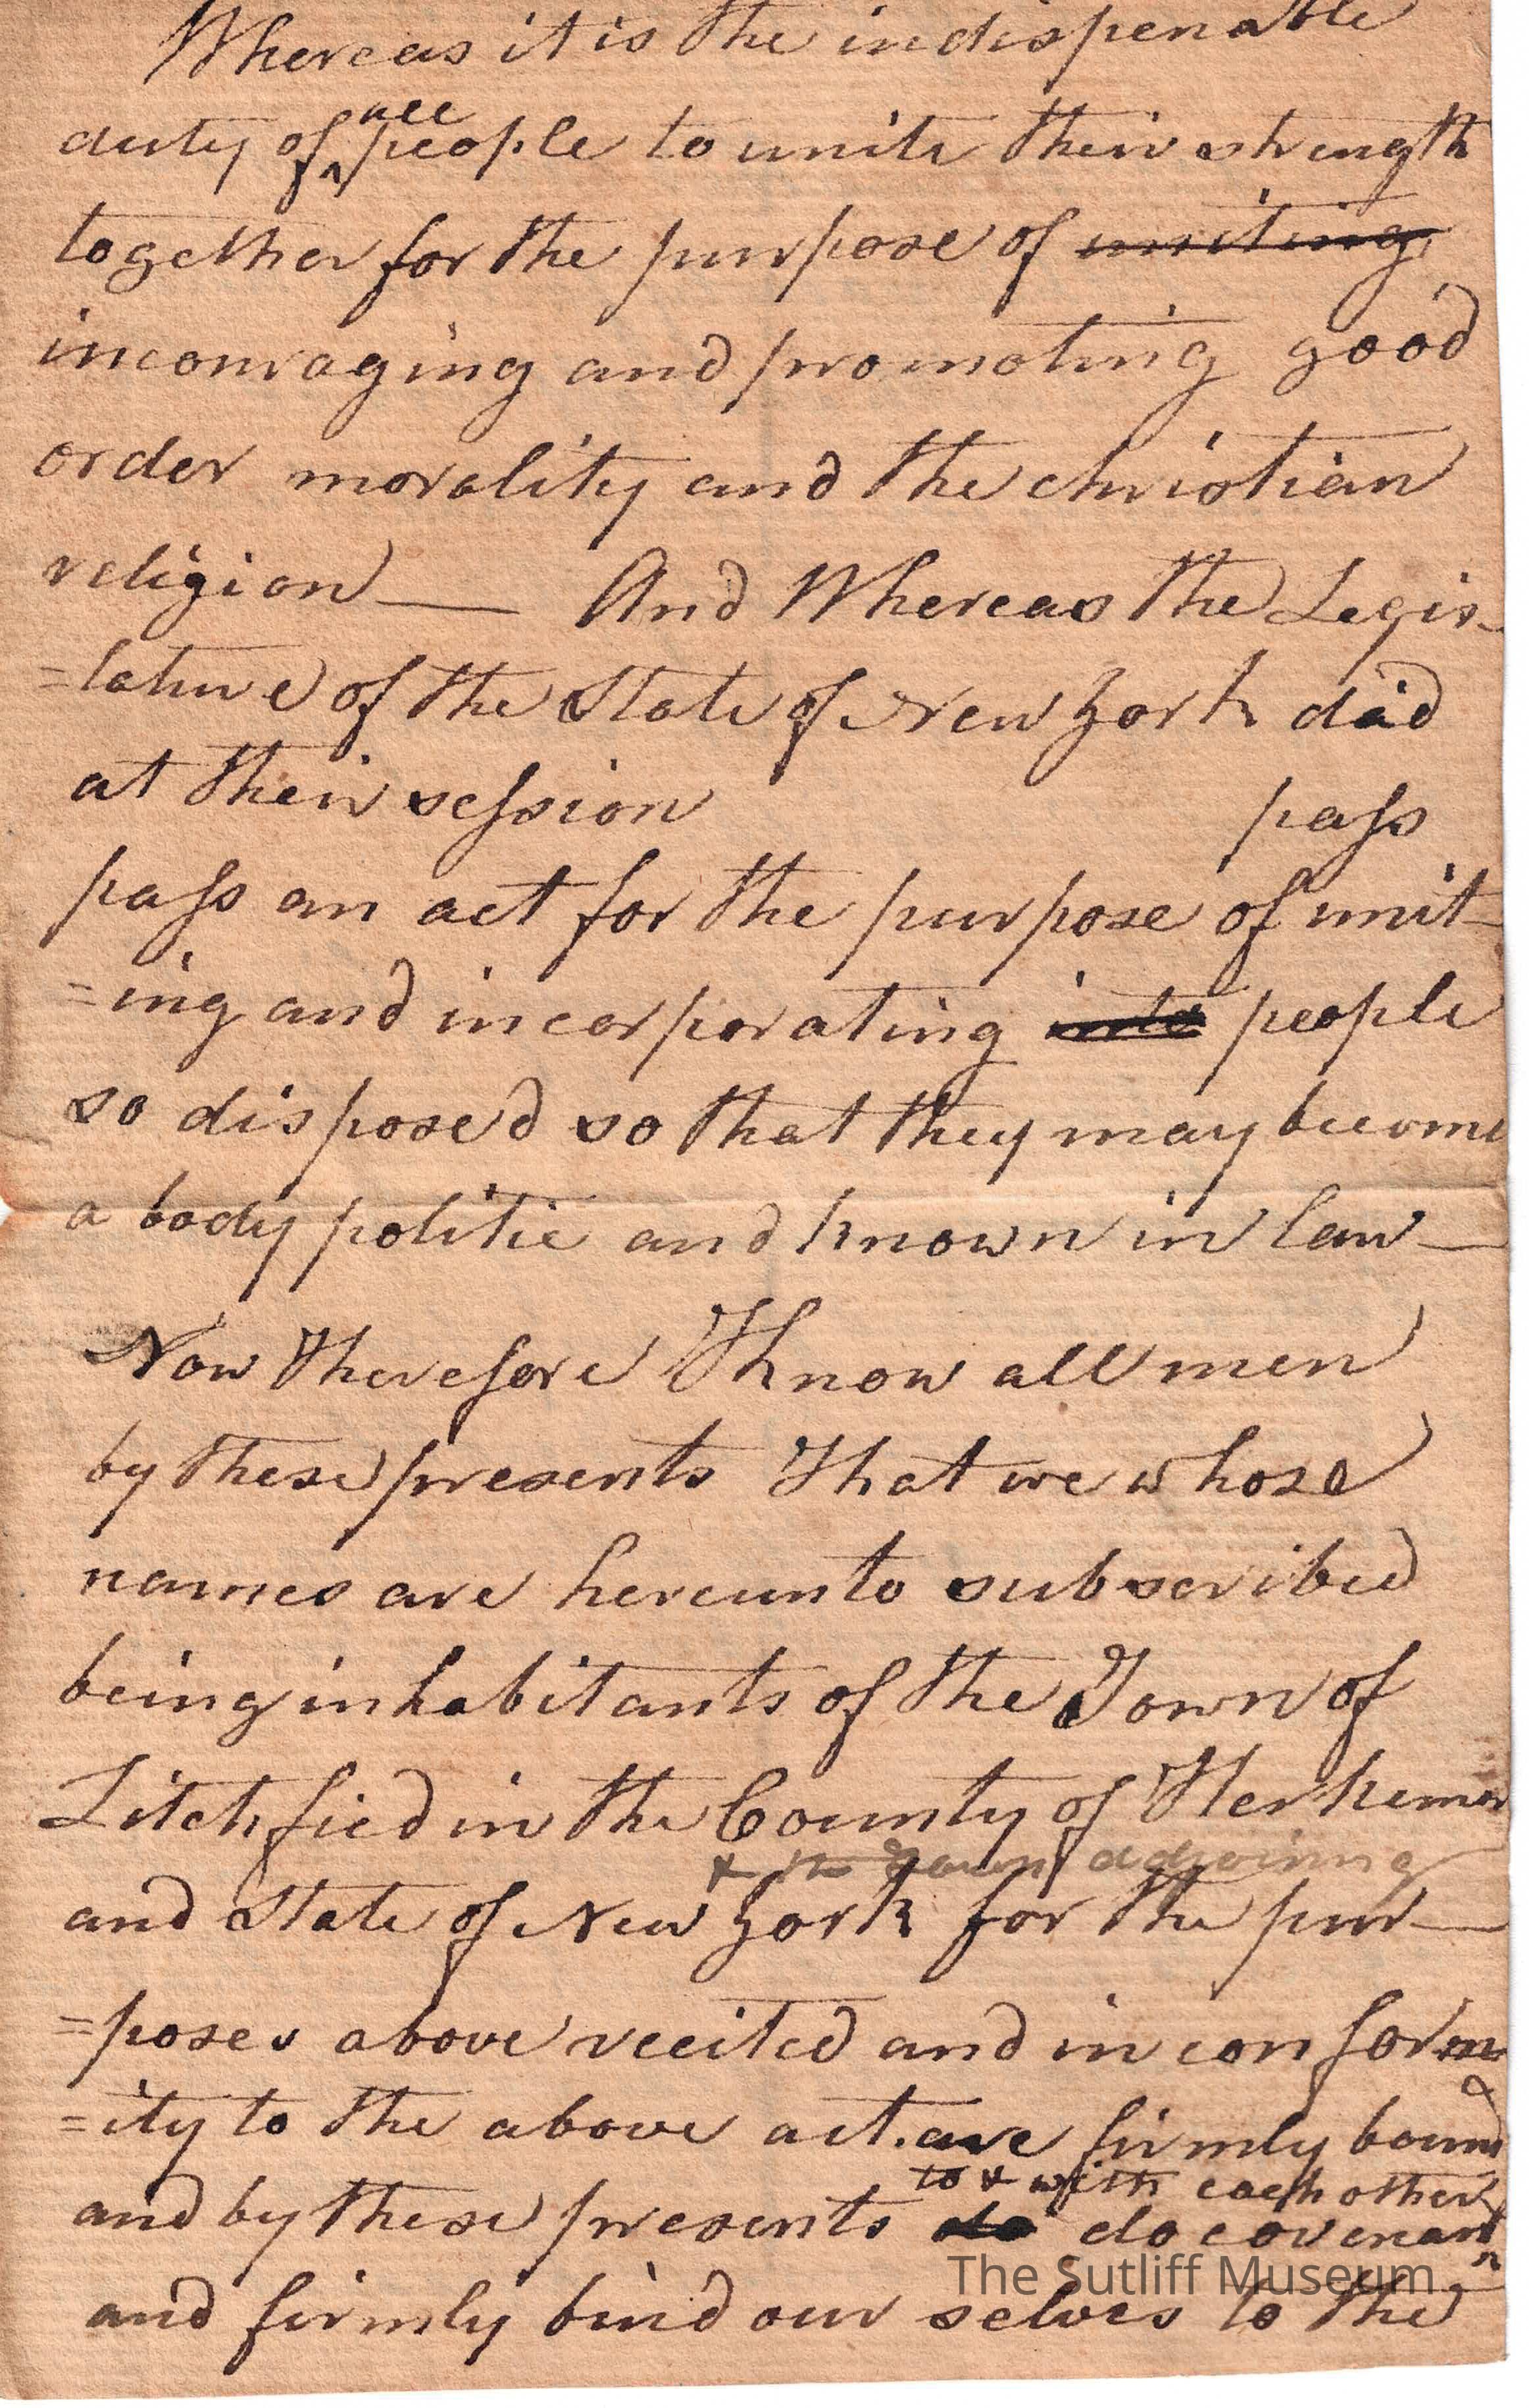 Whereas it is the indispenable
duty of all people to unite their strength
together for the purpose of uniting
incouraging and promoting good
order morality and the christian
religion — And Whereas the Legis-
=lature of the State of New York did
at their session pass
pass an act for the purpose of unit-
=ing and incorporating into people
so disposed so that they may become
a body politic and known in law —
Now therefore Know all men
by these presents That we whose
names are hereunto subscribed
being inhabitants of the Town of
Litchfied in the County of Herkemer
& the Town adjoining
and State of New York for the pur—
=poses above recited and in conform
=ity to the above act. are firmly bound
to & with each other
and by these presents do do covenant
and firmly bind our selves to the
The Sutliff Museum